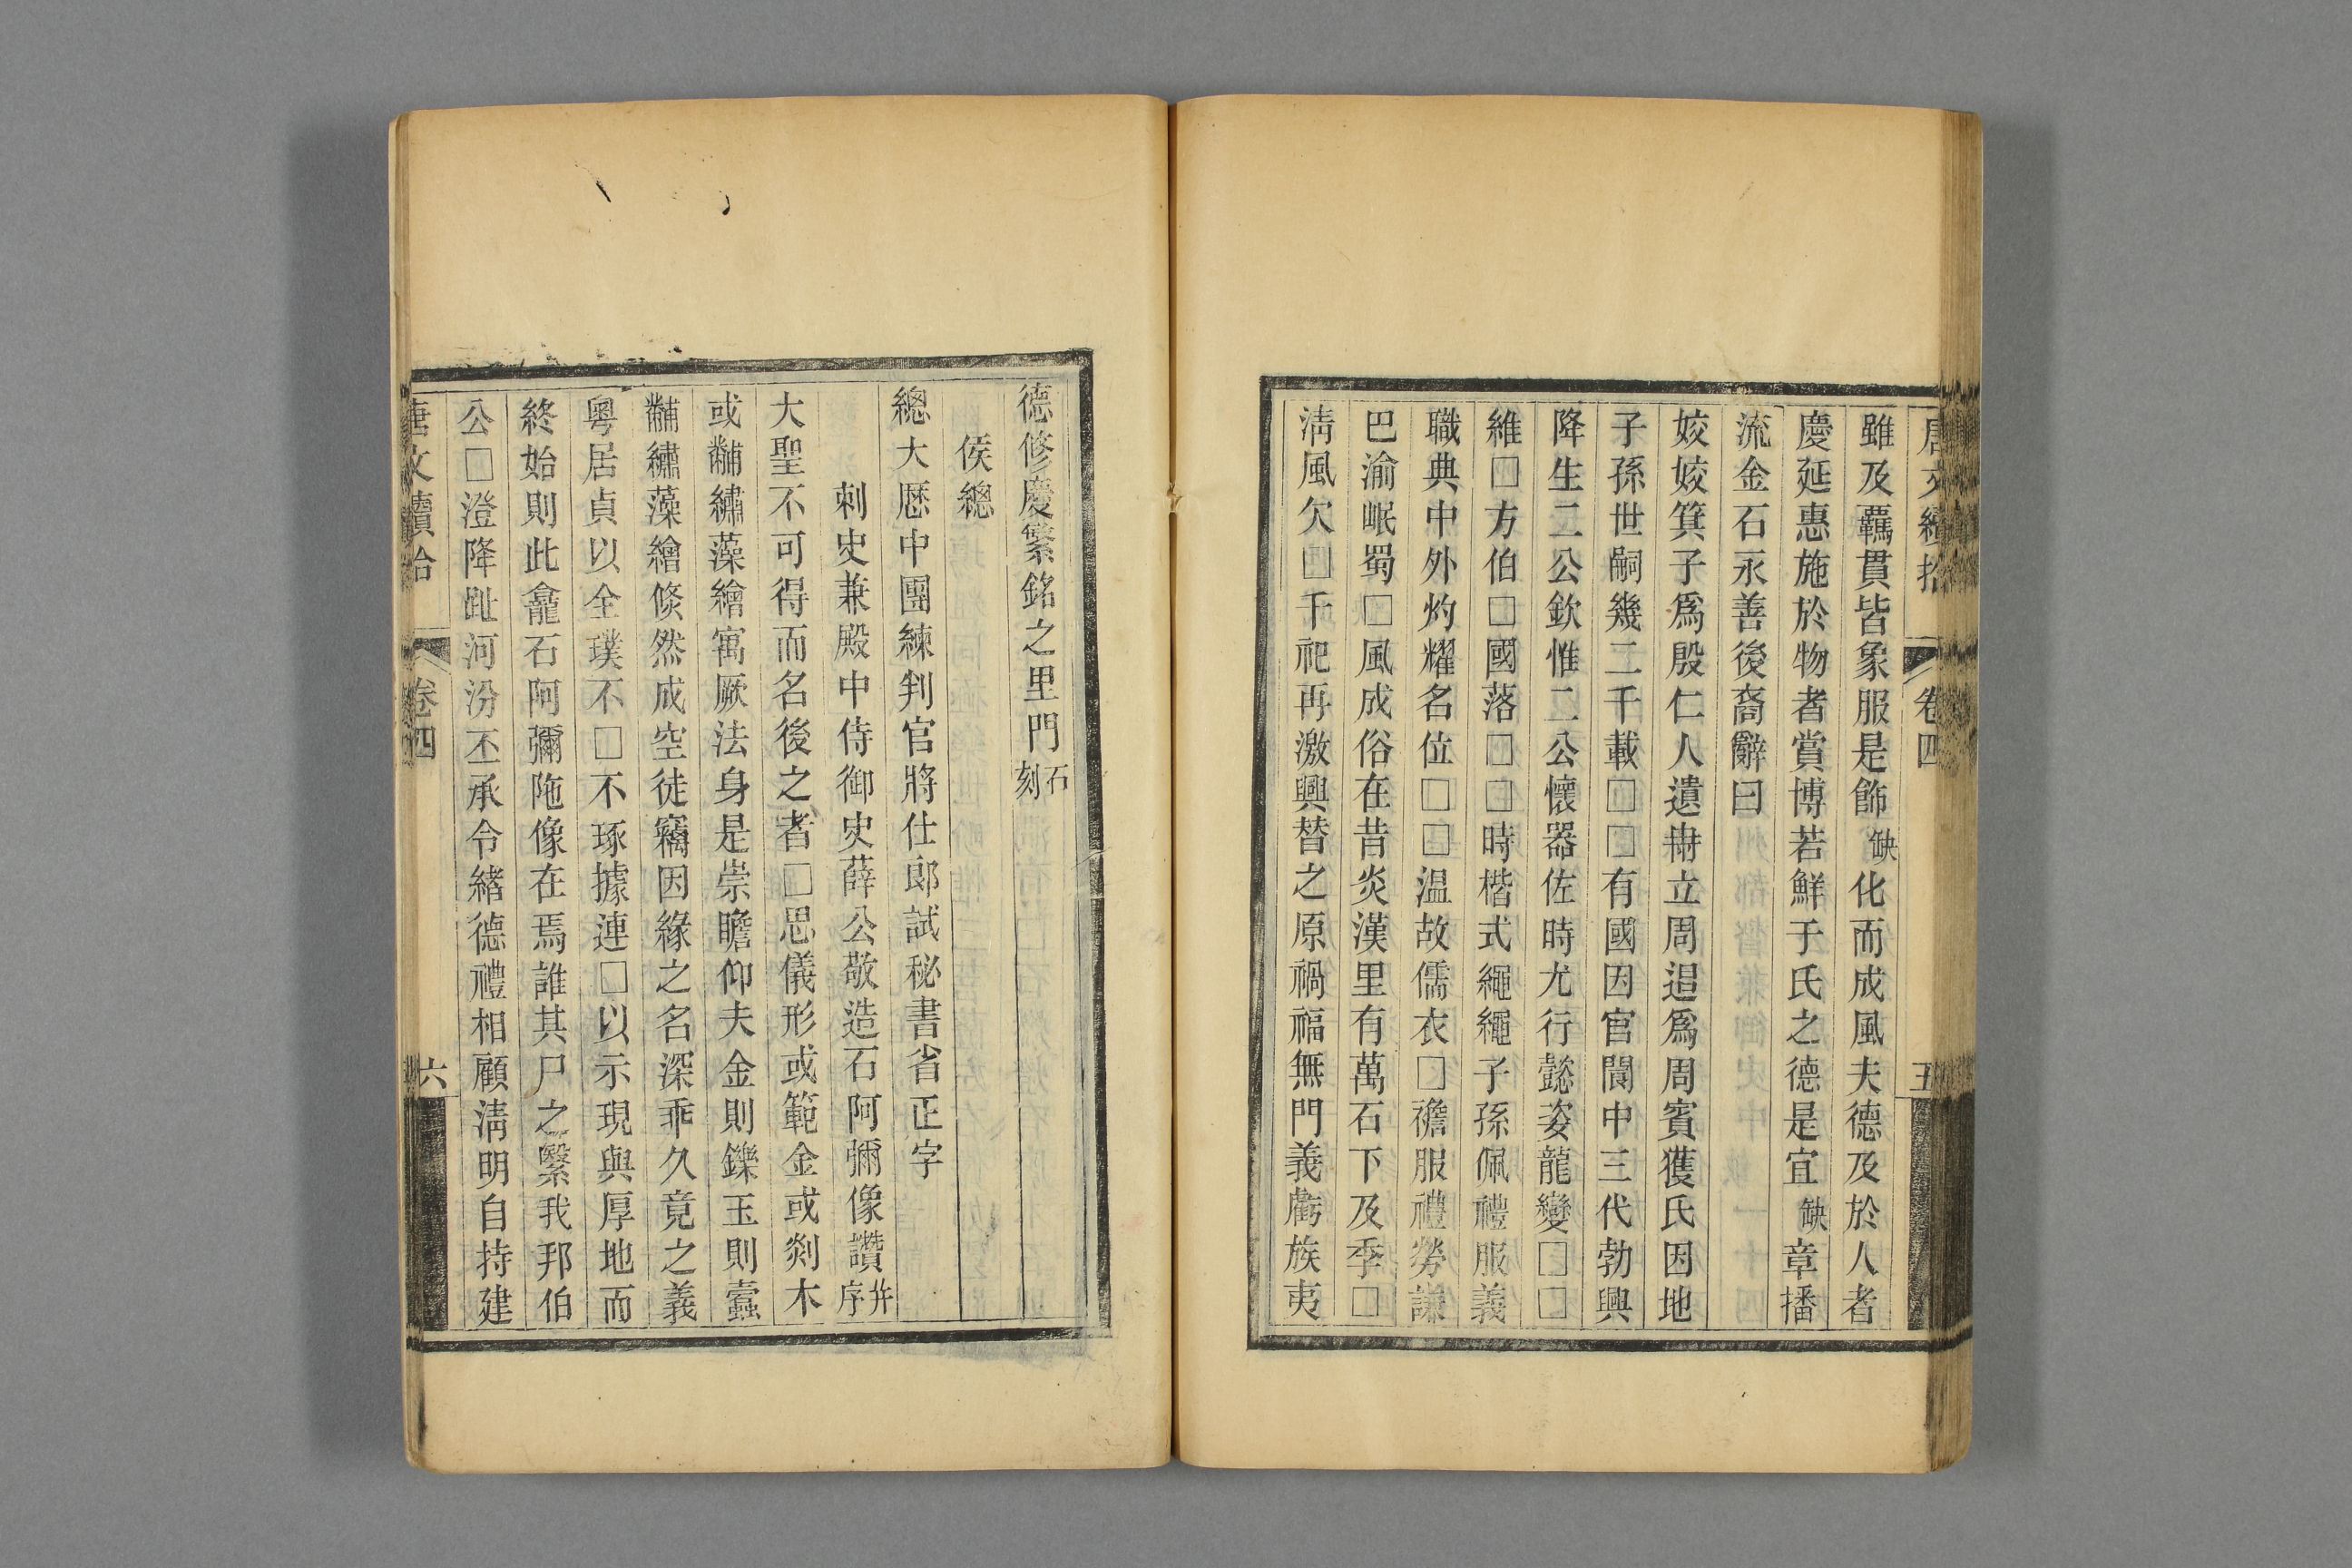 唐文續拾 卷四 五
雖及覊貫皆象服是飾缺化而成風夫德及於人者
慶延惠施於物者賞博若鮮于氏之德是宜缺章播
流金石永善後裔辭曰
姣姣箕子爲殷仁人遺冊立周迨爲周賓獲氏因地
子孫世嗣幾二千載□□有國因官閬中三代勃興
降生二公欽惟二公懷器佐時尤行懿姿龍變□□
維□方伯□國落□□時楷式繩繩子孫佩禮服義
職典中外灼耀名位□□温故儒衣□襜服禮勞謙
巴渝岷蜀□風成俗在昔炎漢里有萬石下及季□
淸風欠□千祀再激興替之原禍福無門義虧族夷
德修慶繁銘之里門石刻
侯總
總大厯中團練判官將仕郎試秘書省正字
刺史兼殿中侍御史薛公敬造石阿彌像讚并序
大聖不可得而名後之者□思儀形或範金或剡木
或黼繡藻繪寓厥法身是崇瞻仰夫金則鑠玉則蠹
黼繡藻繪倐然成空徒竊因緣之名深乖久竟之義
粵居貞以全璞不□不琢據連□以示現與厚地而
終始則此龕石阿彌陁像在焉誰其尸之繄我邦伯
公□澄降趾河汾丕承令緒德禮相顧淸明自持建
唐文續拾 卷四 六